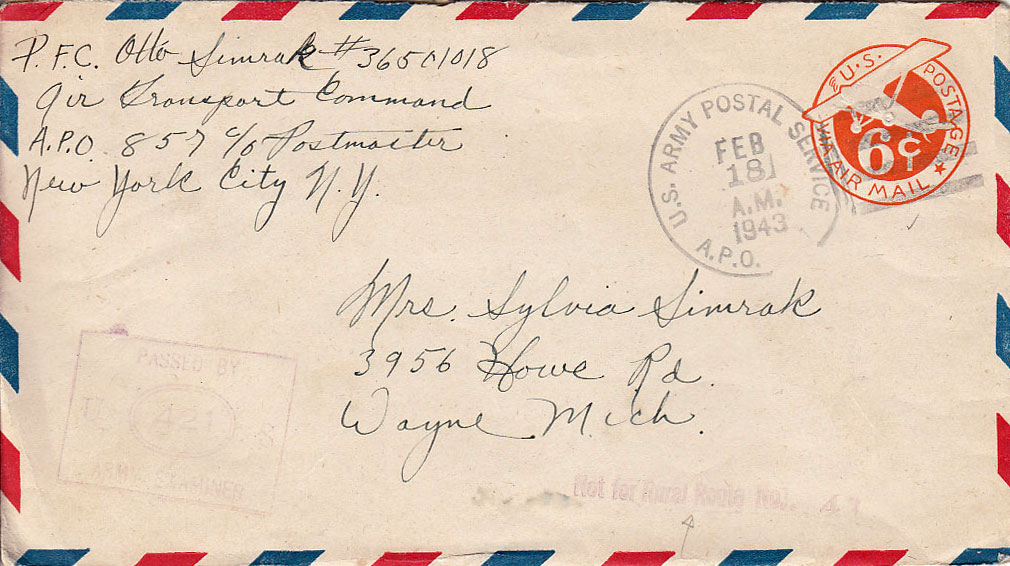 P.F.C. Otto Simrak #36501018
Air Transport Command
A.P.O. 857 c/o Postmaster
New York City N.Y.
U.S. ARMY POSTAL SERVICE
FEB
18
A.M.
1943
A.P.O.
U.S. POSTAGE
6¢
VIA AIR MAIL
Mrs. Sylvia Simrak
3956 Howe Rd.
Wayne Mich.
PASSED BY
ARMY EXAMINER
Not for Rural Route No.